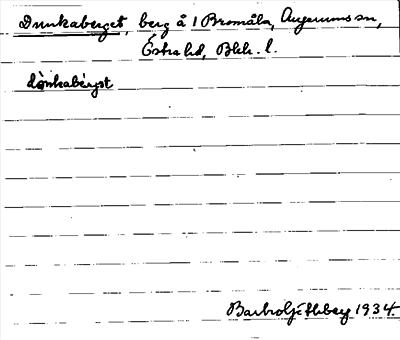 Dunkaberget, berg å 1 Bromåla, Augerums sn,
Östra hd, Blek. l.
dȯnkabǽrjet
Barbro Liffberg 1934.